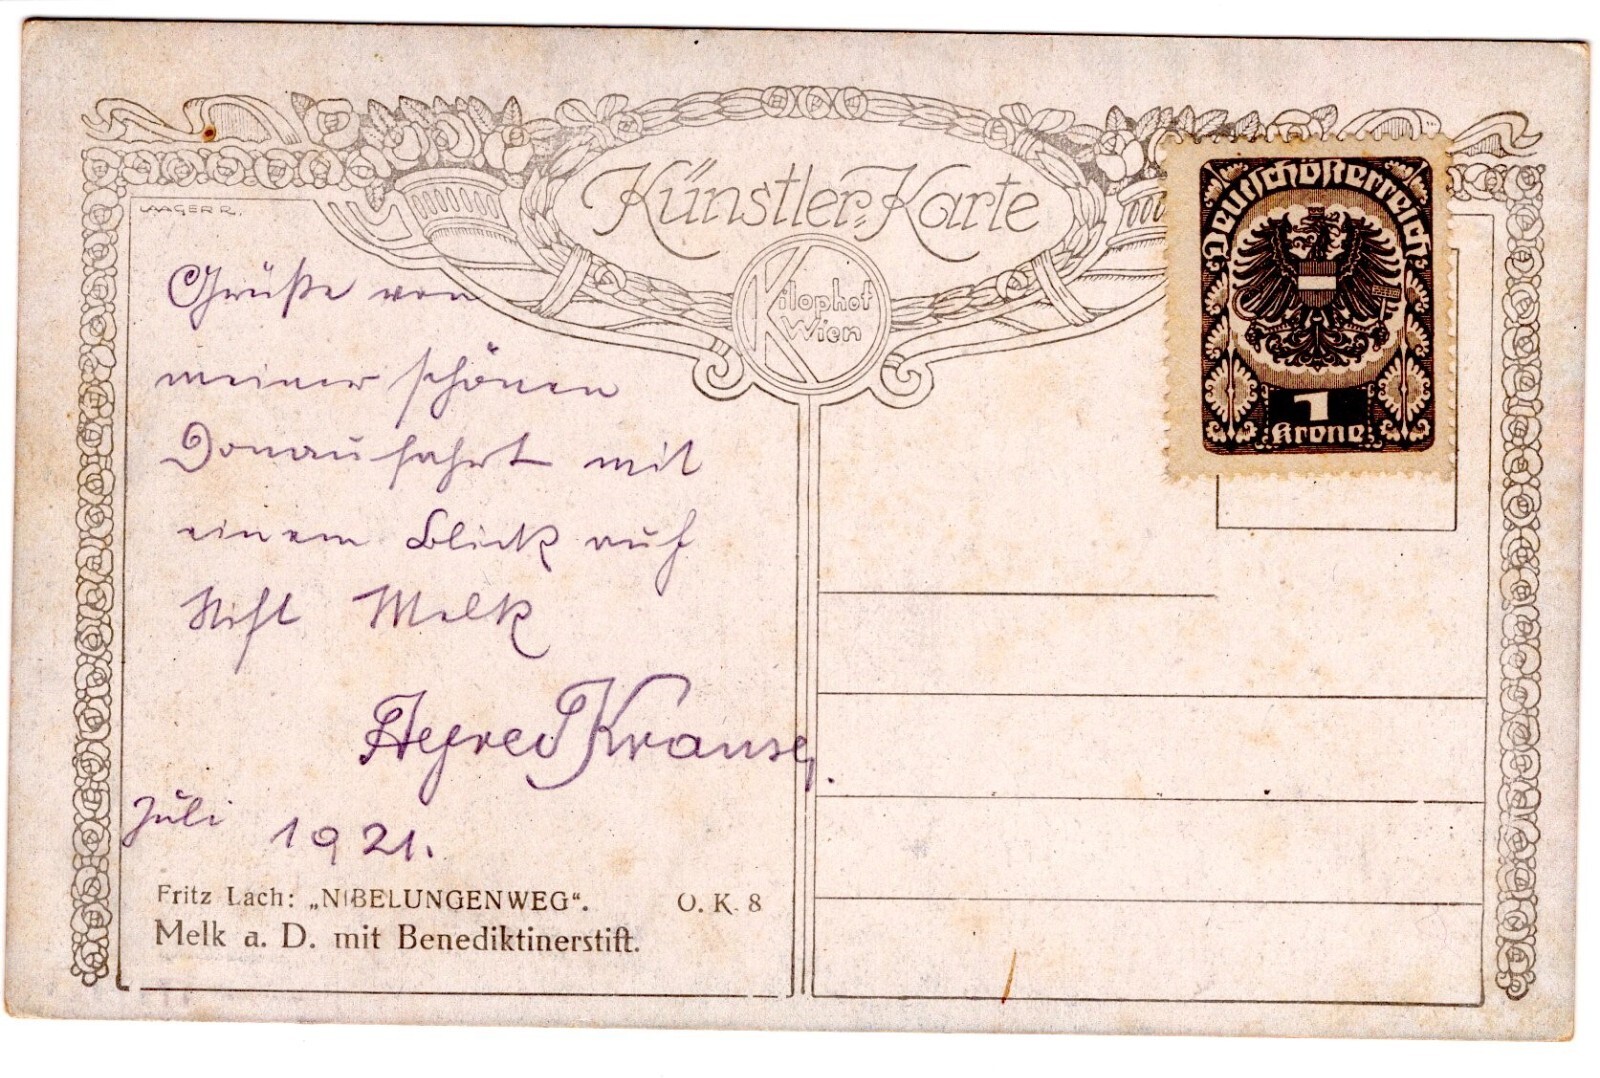 Künstler-Karte
LAAGER R.
Kilophot
Wien
Deutschösterreich
1
Krone
Grüße von
meiner schönen
Donaufahrt mit
einem Blick auf
Stift Melk
Alfred Krause.
Juli 1921.
Fritz Lach: „NIBELUNGENWEG“. O. K. 8
Melk a. D. mit Benediktinerstift.